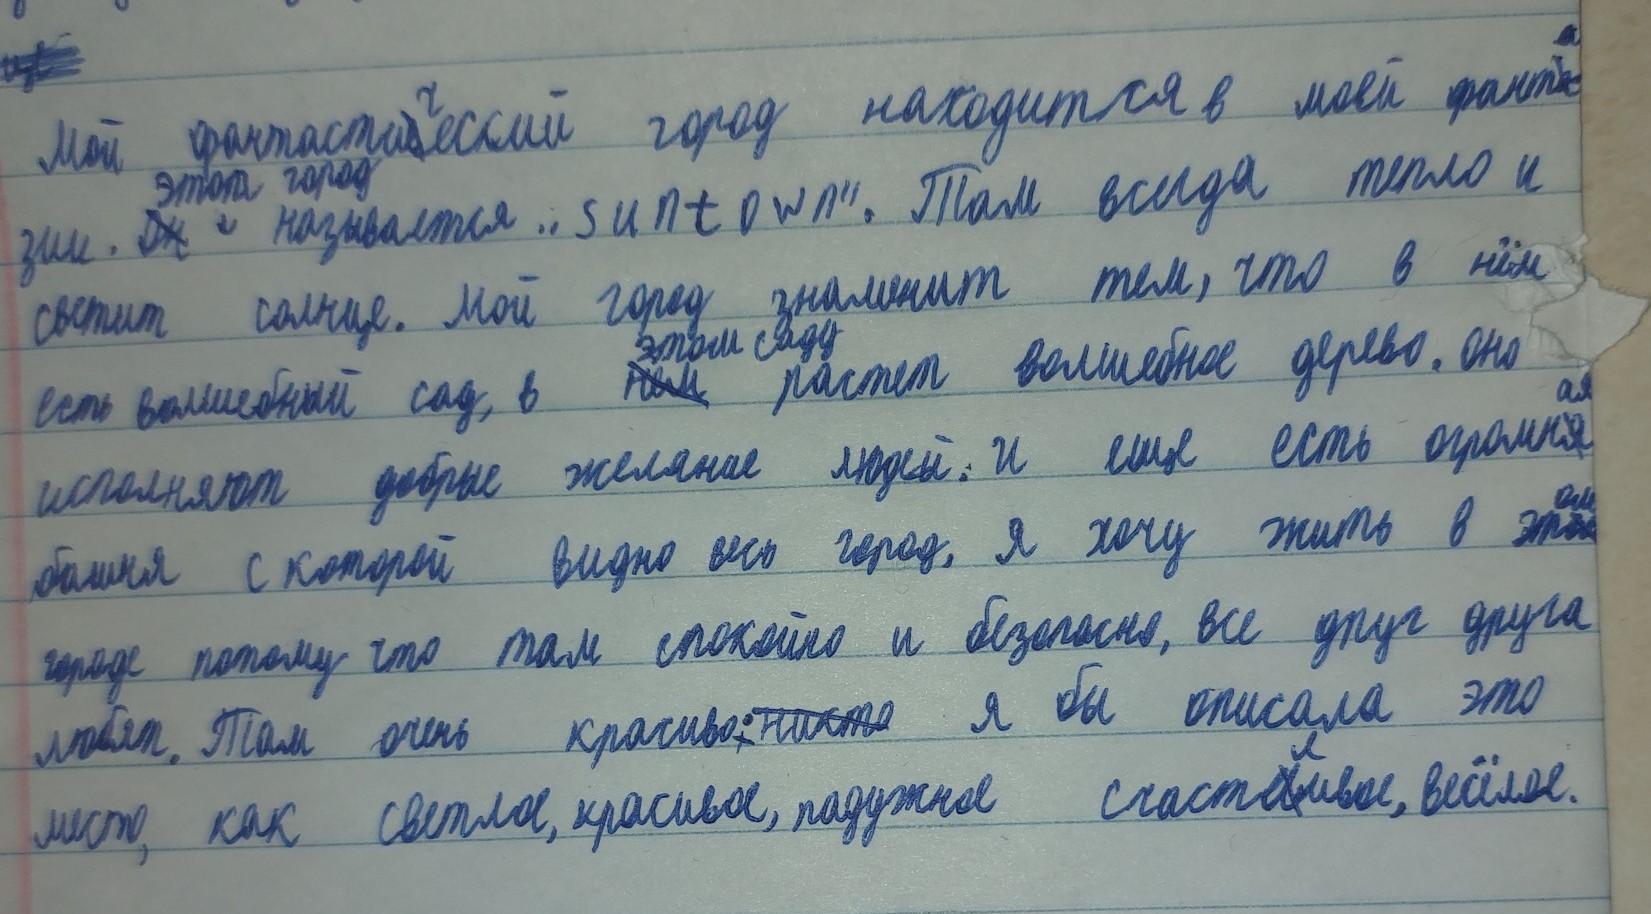 Мой фантастический город находится в моей фанта
зии. этот город называется „suntown". Там всегда тепло и
светит солнце. Мой город знаменит тем, что в нём
есть волшебный сад, в этом саду растет волшебное дерево. оно
исполняют добрые желание людей. И еще есть огромная
башня с которой видно весь город, я хочу жить в этом
городе потому что там спокойно и безопасно, все друг друга
любят. Там очень красиво. я бы описала это
место, как светлое, красивое, радужное счастливое, весёлое.